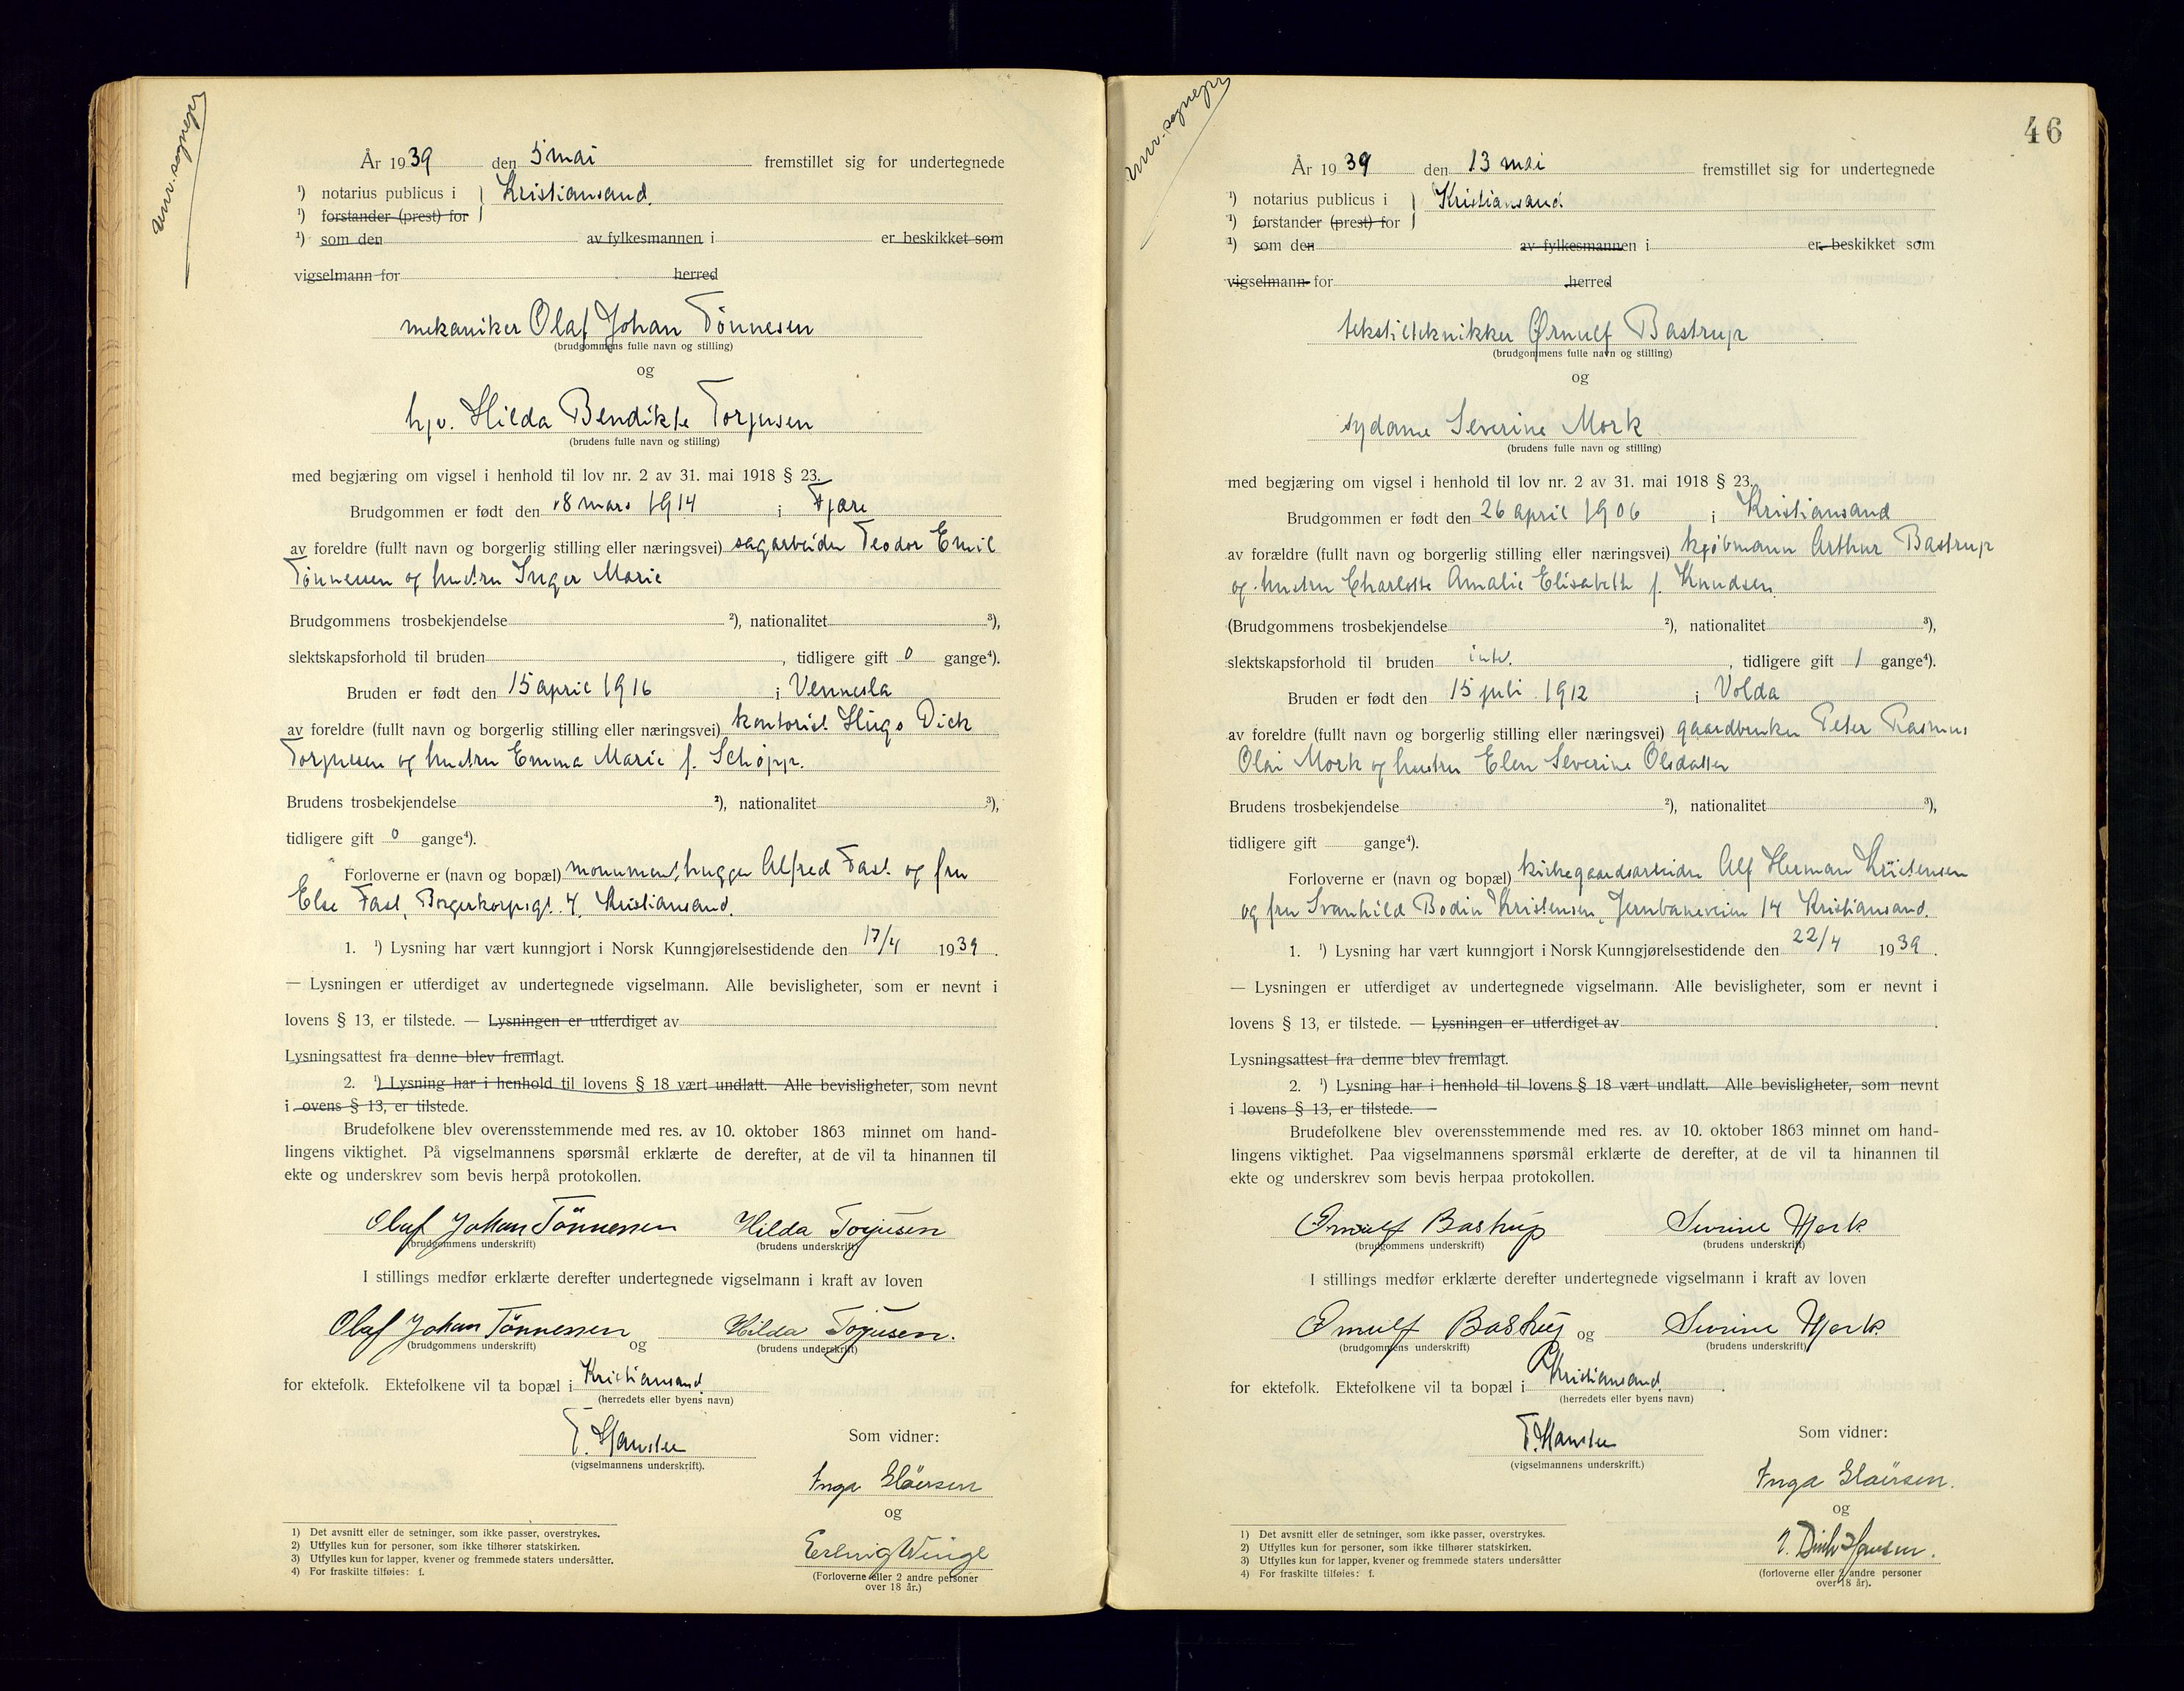 År 1939 den 5 mai fremstillet sig for undertegnede
¹) notarius publicus i Kristiansand.
¹) forstander (prest) for
¹) som den av fylkesmannen i er beskikket som
vigselmann for herred
mekaniker Olaf Johan Tönnesen
(brudgommens fulle navn og stilling)
og
hjv. Hilda Bendikte Torjusen
(brudens fulle navn og stilling)
med begjæring om vigsel i henhold til lov nr. 2 av 31. mai 1918 § 23.
Brudgommen er født den 18 mars 1914 i Fjære
av foreldre (fullt navn og borgerlig stilling eller næringsvei) sagarbeider Teodor Emil
Tönnesen og hustru Inger Marie
Brudgommens trosbekjendelse ²), nationalitet ³),
slektskapsforhold til bruden , tidligere gift 0 gange⁴).
Bruden er født den 15 april 1916 i Vennesla
av foreldre (fullt navn og borgerlig stilling eller næringsvei) kontorist Hugo Dick
Torjusen og hustru Emma Marie f. Schøpp.
Brudens trosbekjendelse ²), nationalitet ³),
tidligere gift 0 gange⁴).
Forloverne er (navn og bopæl) monumenthugger Alfred Fast og fru
Else Fast, Borgerkorpsgt. 4, Kristiansand.
1. ¹) Lysning har vært kunngjort i Norsk Kunngjørelsestidende den 17/4 1939.
— Lysningen er utferdiget av undertegnede vigselmann. Alle bevisligheter, som er nevnt i
lovens § 13, er tilstede. — Lysningen er utferdiget av
Lysningsattest fra denne blev fremlagt.
2. ¹) Lysning har i henhold til lovens § 18 vært undlatt. Alle bevisligheter, som nevnt
i ovens § 13, er tilstede.
Brudefolkene blev overensstemmende med res. av 10. oktober 1863 minnet om hand-
lingens viktighet. På vigselmannens spørsmål erklærte de derefter, at de vil ta hinannen til
ekte og underskrev som bevis herpå protokollen.
Olaf Johan Tönnessen Hilda Torjusen
(brudgommens underskrift) (brudens underskrift)
I stillings medfør erklærte derefter undertegnede vigselmann i kraft av loven
Olaf Johan Tönnessen og Hilda Torjusen.
(brudgommens underskrift) (brudens underskrift)
for ektefolk. Ektefolkene vil ta bopæl i Kristiansand.
(herredets eller byens navn)
T. Hansen
(vigselmannens underskrift).
Som vidner:
Inga Glöersen
og
Erling Winge
(Forloverne eller 2 andre personer
over 18 år.)
1) Det avsnitt eller de setninger, som ikke passer, overstrykes.
2) Utfylles kun for personer, som ikke tilhører statskirken.
3) Utfylles kun for lapper, kvener og fremmede staters undersåtter.
4) For fraskilte tilføies: f.
46
År 1939 den 13 mai fremstillet sig for undertegnede
¹) notarius publicus i Kristiansand.
¹) forstander (prest) for
¹) som den av fylkesmannen i er beskikket som
vigselmann for herred
tekstilteknikker Ørnulf Bastrup
(brudgommens fulle navn og stilling)
og
sydame Severine Mork
(brudens fulle navn og stilling)
med begjæring om vigsel i henhold til lov nr. 2 av 31. mai 1918 § 23.
Brudgommen er født den 26 april 1906 i Kristiansand
av forældre (fullt navn og borgerlig stilling eller næringsvei) kjøbmann Arthur Bastrup
og hustru Charlotte Amalie Elisabeth f. Knudsen.
(Brudgommens trosbekjendelse ²), nationalitet ³),
slektskapsforhold til bruden intv. , tidligere gift 1 gange⁴).
Bruden er født den 15 juli 1912 i Volda
av foreldre (fullt navn og borgerlig stilling eller næringsvei) gaardbruker Peter Rasmus
Olai Mork og hustru Elen Severine Olsdatter
Brudens trosbekjendelse ²), nationalitet ³),
tidligere gift gange⁴).
Forloverne er (navn og bopæl) kirkegaardsarbeider Alf Herman Kristensen
og fru Svanhild Bodin Kristensen, Jernbaneveien 14 Kristiansand.
1. ¹) Lysning har vært kunngjort i Norsk Kunngjørelsestidende den 22/4 1939.
— Lysningen er utferdiget av undertegnede vigselmann. Alle bevisligheter, som er nevnt i
lovens § 13, er tilstede. — Lysningen er utferdiget av
Lysningsattest fra denne blev fremlagt.
2. ¹) Lysning har i henhold til lovens § 18 vært undlatt. Alle bevisligheter, som nevnt
i lovens § 13, er tilstede. —
Brudefolkene blev overensstemmende med res. av 10. oktober 1863 minnet om hand-
lingens viktighet. Paa vigselmannens spørsmål erklærte de derefter, at de vil ta hinannen til
ekte og underskrev som bevis herpaa protokollen.
Ørnulf Bastrup Severine Mork
(brudgommens underskrift) (brudens underskrift)
I stillings medfør erklærte derefter undertegnede vigselmann i kraft av loven
Ørnulf Bastrup og Severine Mork.
(brudgommens underskrift) (brudens underskrift)
for ektefolk. Ektefolkene vil ta bopæl i Kristiansand.
(herredets eller byens navn)
T. Hansen
(vigselmannens underskrift.)
Som vidner:
Inga Glöersen.
og
Hansen.
(forloverne eller 2 andre personer
over 18 år).
1) Det avsnitt eller de setninger, som ikke passer, overstrykes.
2) Utfylles kun for personer, som ikke tilhører statskirken.
3) Utfylles kun for lapper, kvener og fremmede staters undersåtter
4) For fraskilte tilføies: f.